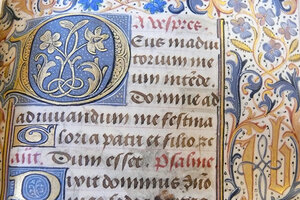 A vespres.
Deus in adiu
torium meum
intende.
Domine ad
adiuuandum me festina
Gloria patri et filio &
añt. Dum esset. Psalme
Dixit dominus dño